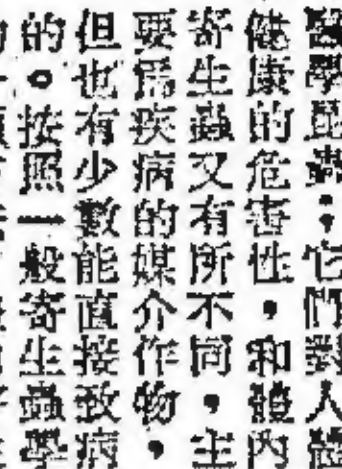 醫學昆蟲；它們對人體
健康的危害性，和體內
寄生蟲又有所不同，主
要爲疾病的媒介作物，
但也有少數能直接致病
的。按照一般寄生蟲學